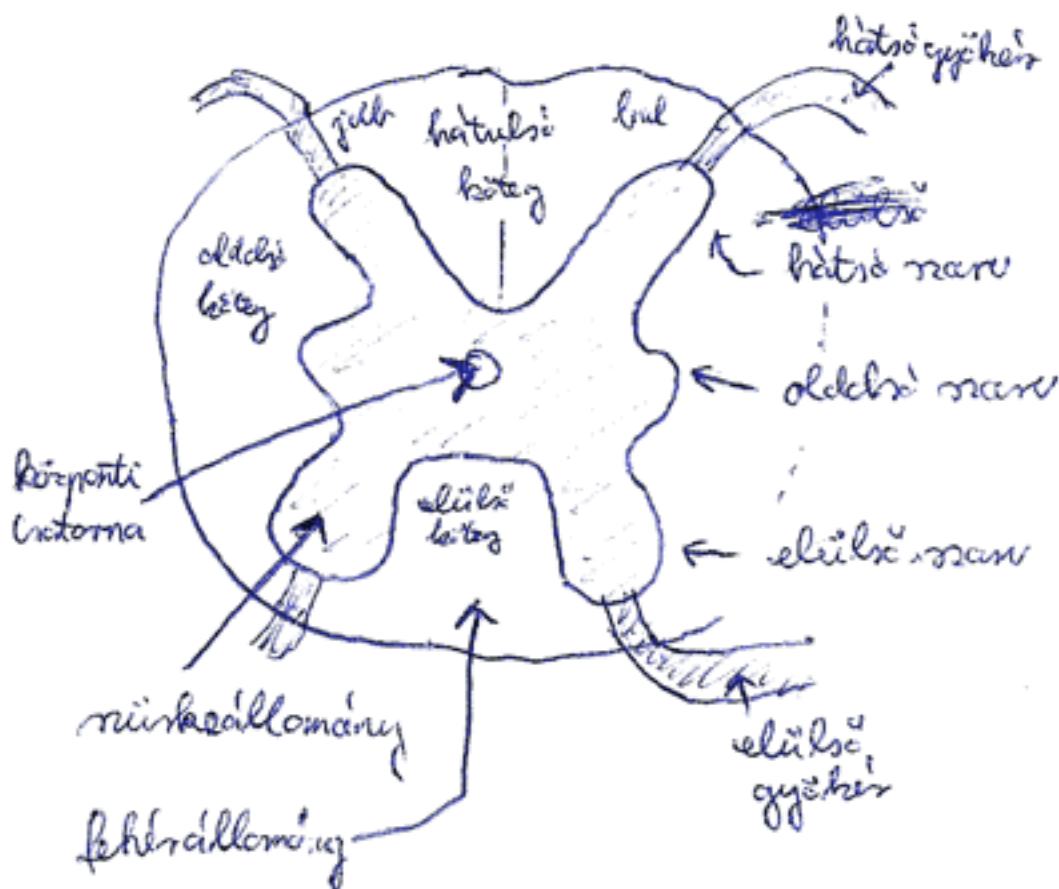 hátsó gyökér
jobb
hátulsó
köteg
bal
hátsó szarv
oldalsó
köteg
oldalsó szarv
központi
csatorna
elülső
köteg
elülső szarv
szürkeállomány
elülső
gyökér
fehérállomány